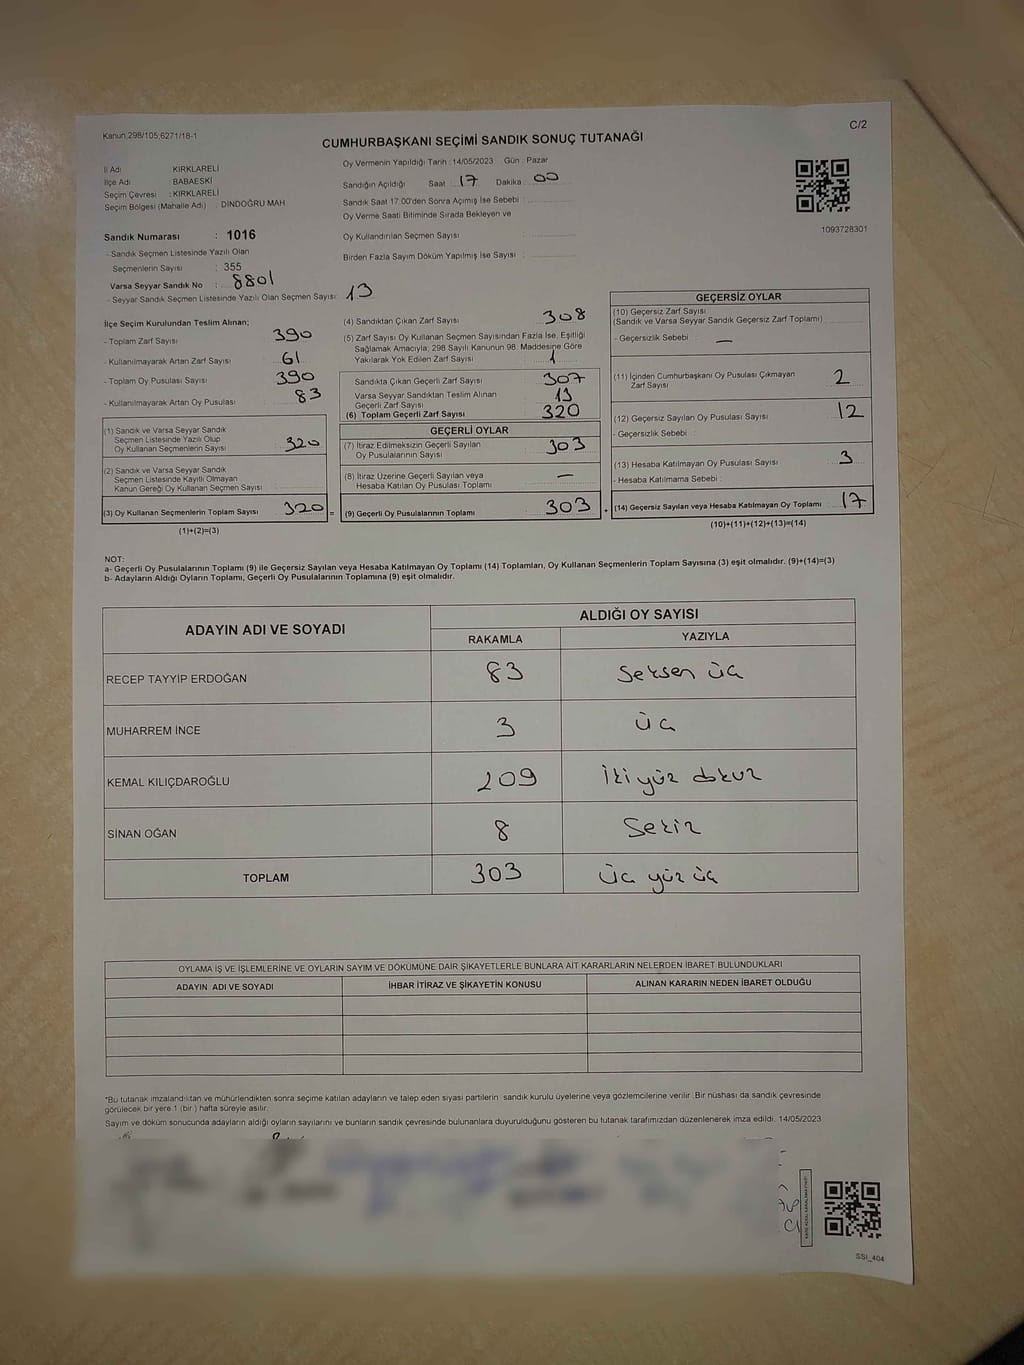 Kanun;298/105;6271/18-1
C/2
CUMHURBAŞKANI SEÇİMİ SANDIK SONUÇ TUTANAĞI
İl Adı : KIRKLARELİ
İlçe Adı : BABAESKİ
Seçim Çevresi : KIRKLARELİ
Seçim Bölgesi (Mahalle Adı) : DİNDOĞRU MAH
Sandık Numarası : 1016
- Sandık Seçmen Listesinde Yazılı Olan
Seçmenlerin Sayısı : 355
Varsa Seyyar Sandık No : 8801
- Seyyar Sandık Seçmen Listesinde Yazılı Olan Seçmen Sayısı: 13
Oy Vermenin Yapıldığı Tarih : 14/05/2023 Gün : Pazar
Sandığın Açıldığı Saat : 17 Dakika : 00
Sandık Saat 17.00'den Sonra Açımış İse Sebebi :
Oy Verme Saati Bitiminde Sırada Bekleyen ve
Oy Kullandırılan Seçmen Sayısı :
Birden Fazla Sayım Döküm Yapılmış İse Sayısı :
1093728301
İlçe Seçim Kurulundan Teslim Alınan;
- Toplam Zarf Sayısı : 390
- Kullanılmayarak Artan Zarf Sayısı : 61
- Toplam Oy Pusulası Sayısı : 390
- Kullanılmayarak Artan Oy Pusulası : 83
(1) Sandık ve Varsa Seyyar Sandık
Seçmen Listesinde Yazılı Olup
Oy Kullanan Seçmenlerin Sayısı : 320
(2) Sandık ve Varsa Seyyar Sandık
Seçmen Listesinde Kayıtlı Olmayan
Kanun Gereği Oy Kullanan Seçmen Sayısı :
(3) Oy Kullanan Seçmenlerin Toplam Sayısı : 320 =
(1)+(2)=(3)
(4) Sandıktan Çıkan Zarf Sayısı : 308
(5) Zarf Sayısı Oy Kullanan Seçmen Sayısından Fazla İse, Eşitliği
Sağlamak Amacıyla; 298 Sayılı Kanunun 98. Maddesine Göre
Yakılarak Yok Edilen Zarf Sayısı : 1
Sandıkta Çıkan Geçerli Zarf Sayısı : 307
Varsa Seyyar Sandıktan Teslim Alınan
Geçerli Zarf Sayısı : 13
(6) Toplam Geçerli Zarf Sayısı : 320
GEÇERLİ OYLAR
(7) İtiraz Edilmeksizin Geçerli Sayılan
Oy Pusulalarının Sayısı : 303
(8) İtiraz Üzerine Geçerli Sayılan veya
Hesaba Katılan Oy Pusulası Toplamı : —
(9) Geçerli Oy Pusulalarının Toplamı : 303 +
GEÇERSİZ OYLAR
(10) Geçersiz Zarf Sayısı
(Sandık ve Varsa Seyyar Sandık Geçersiz Zarf Toplamı)
- Geçersizlik Sebebi : —
(11) İçinden Cumhurbaşkanı Oy Pusulası Çıkmayan
Zarf Sayısı : 2
(12) Geçersiz Sayılan Oy Pusulası Sayısı : 12
- Geçersizlik Sebebi :
(13) Hesaba Katılmayan Oy Pusulası Sayısı : 3
- Hesaba Katılmama Sebebi :
(14) Geçersiz Sayılan veya Hesaba Katılmayan Oy Toplamı : 17
(10)+(11)+(12)+(13)=(14)
NOT:
a- Geçerli Oy Pusulalarının Toplamı (9) ile Geçersiz Sayılan veya Hesaba Katılmayan Oy Toplamı (14) Toplamları, Oy Kullanan Seçmenlerin Toplam Sayısına (3) eşit olmalıdır. (9)+(14)=(3)
b- Adayların Aldığı Oyların Toplamı, Geçerli Oy Pusulalarının Toplamına (9) eşit olmalıdır.
ADAYIN ADI VE SOYADI ALDIĞI OY SAYISI
RAKAMLA YAZIYLA
RECEP TAYYİP ERDOĞAN 83 Seksen üç
MUHARREM İNCE 3 üç
KEMAL KILIÇDAROĞLU 209 İki yüz dokuz
SİNAN OĞAN 8 Sekiz
TOPLAM 303 Üç yüz üç
OYLAMA İŞ VE İŞLEMLERİNE VE OYLARIN SAYIM VE DÖKÜMÜNE DAİR ŞİKAYETLERLE BUNLARA AİT KARARLARIN NELERDEN İBARET BULUNDUKLARI
ADAYIN ADI VE SOYADI İHBAR İTİRAZ VE ŞİKAYETİN KONUSU ALINAN KARARIN NEDEN İBARET OLDUĞU
*Bu tutanak imzalandıktan ve mühürlendikten sonra seçime katılan adayların ve talep eden siyasi partilerin sandık kurulu üyelerine veya gözlemcilerine verilir. Bir nüshası da sandık çevresinde
görülecek bir yere 1 (bir ) hafta süreyle asılır.
Sayım ve döküm sonucunda adayların aldığı oyların sayılarını ve bunların sandık çevresinde bulunanlara duyurulduğunu gösteren bu tutanak tarafımızdan düzenlenerek imza edildi. 14/05/2023
SSI_404